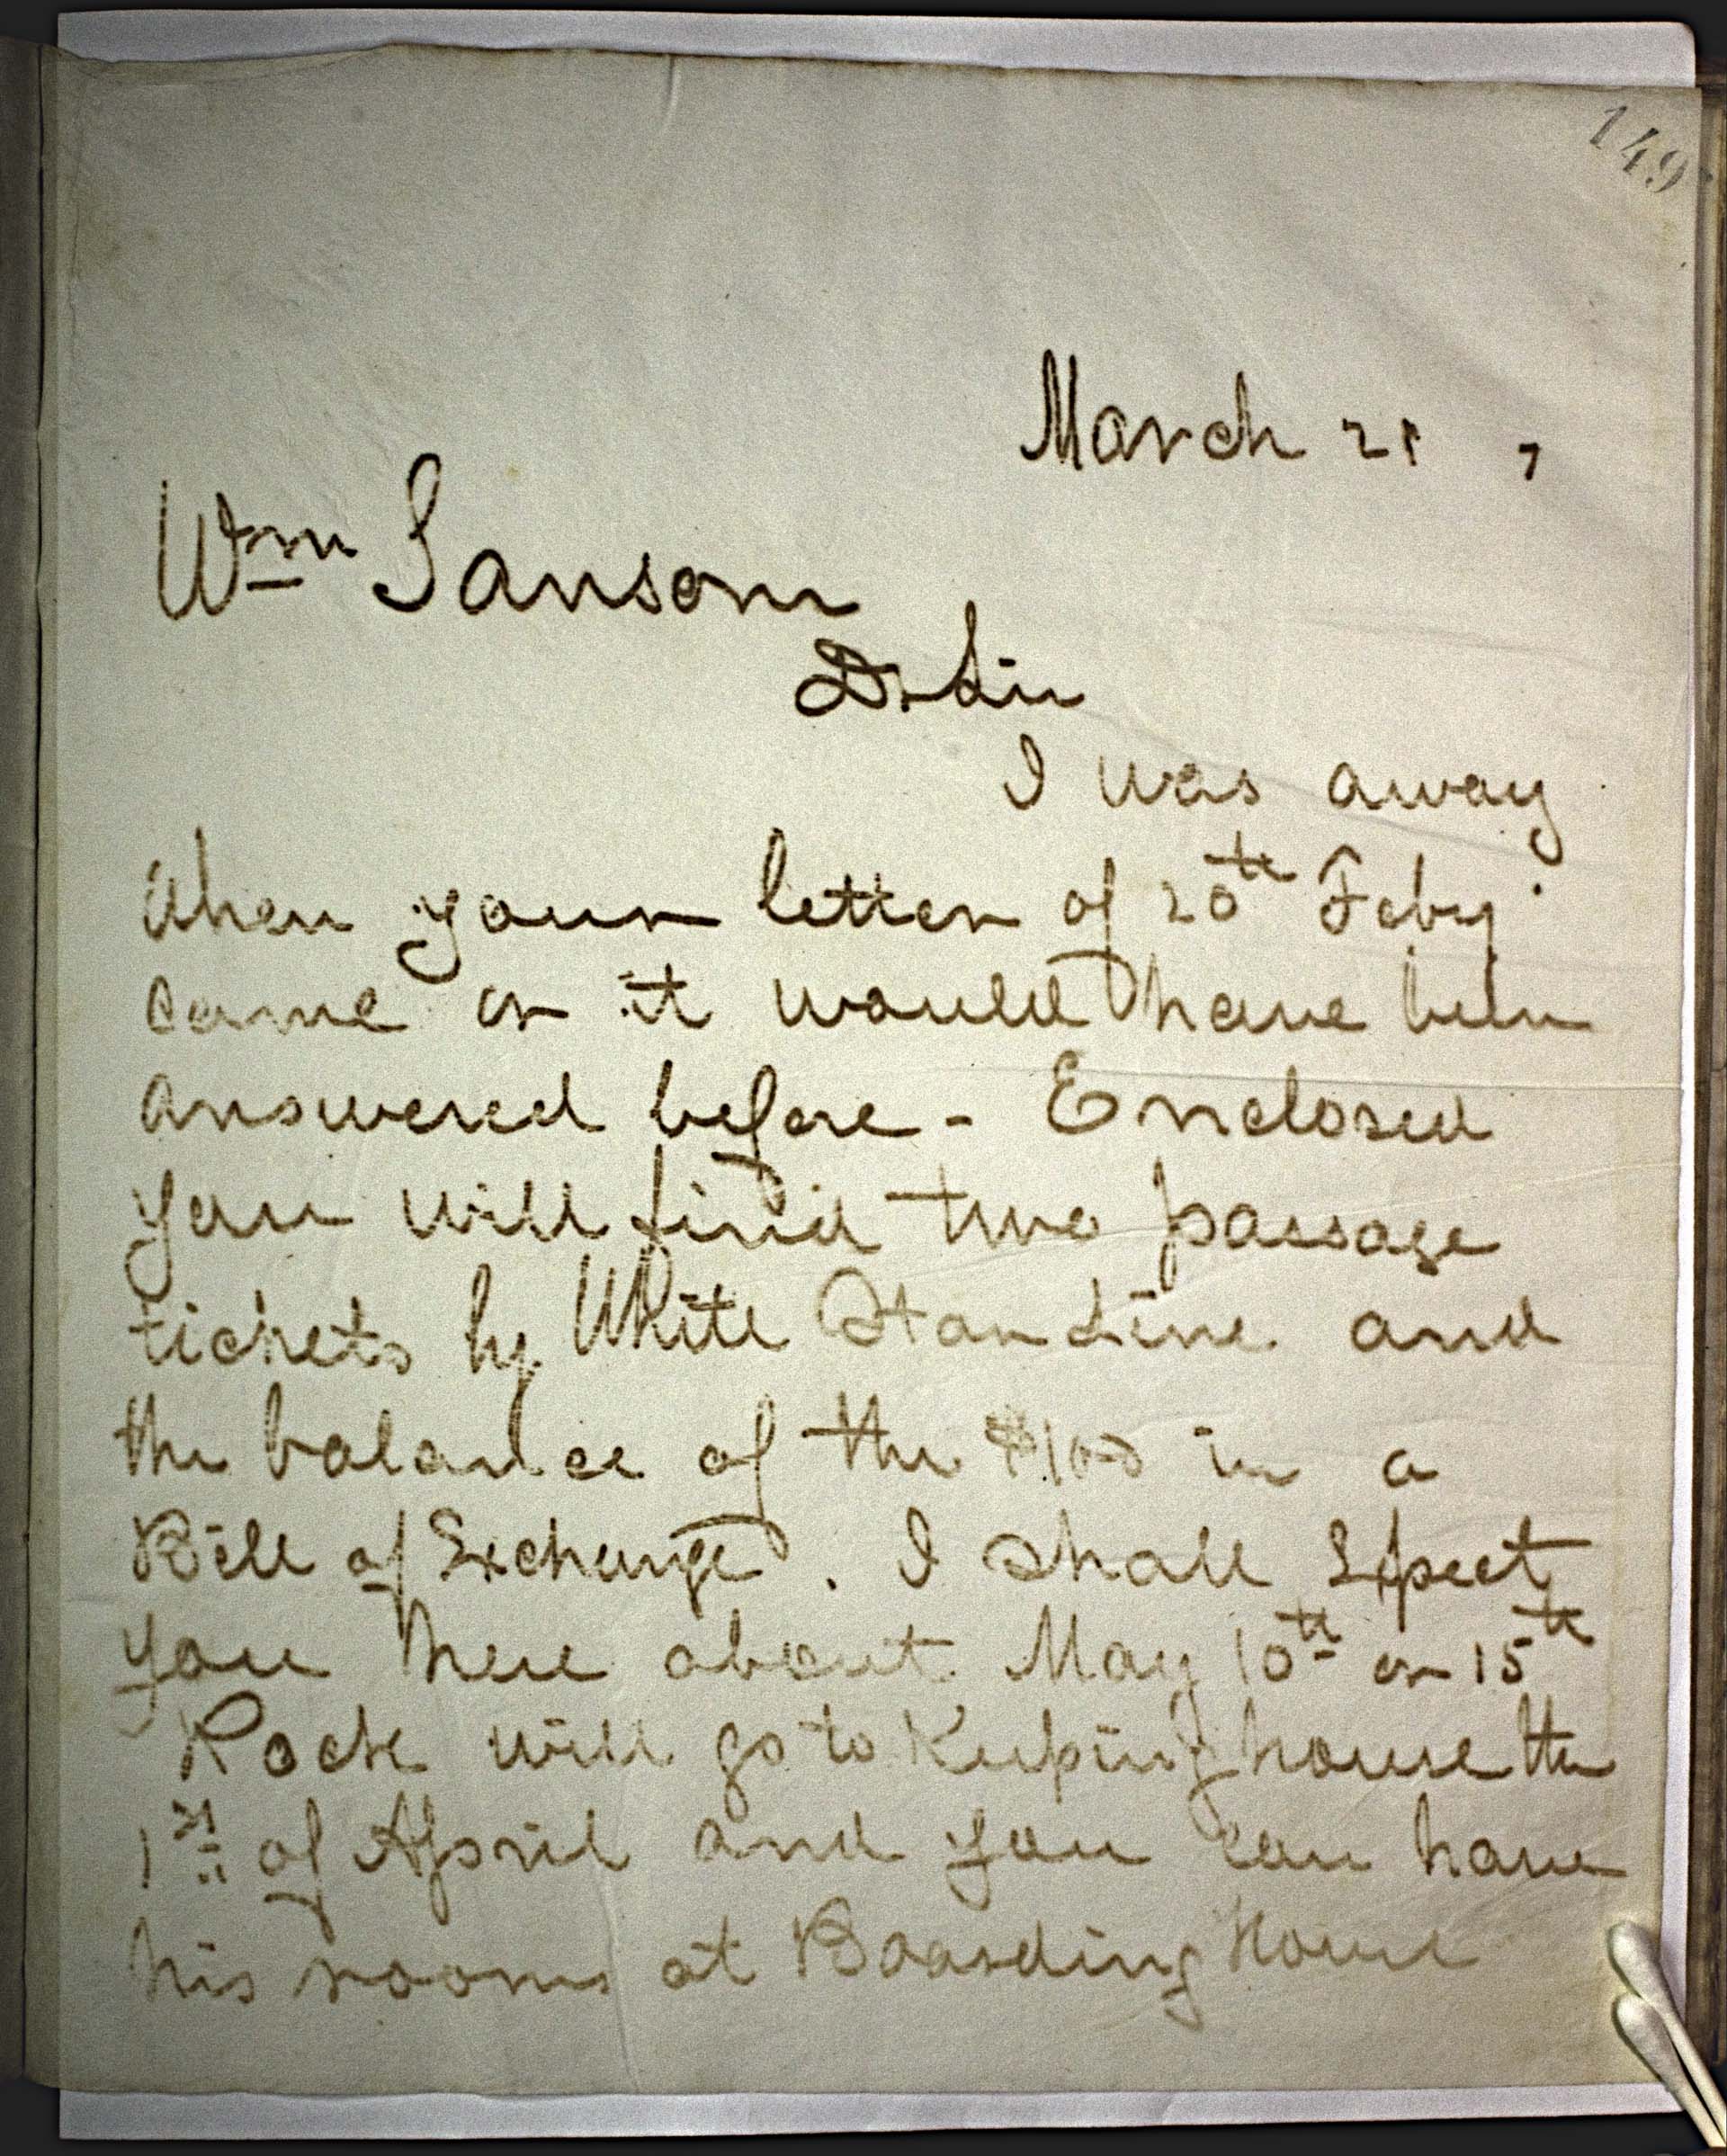 149
March 21 ,
Wm Sansom
Dr Sir
I was away
when your letter of 20th Feby
came or it would have been
answered before - Enclosed
you will find two passage
tickets by White Star Line and
the balance of the $100 in a
Bill of Exchange. I shall Expect
you here about May 10th or 15th
Rock will go to Keeping house the
1st of April and you can have
his rooms at Boarding House